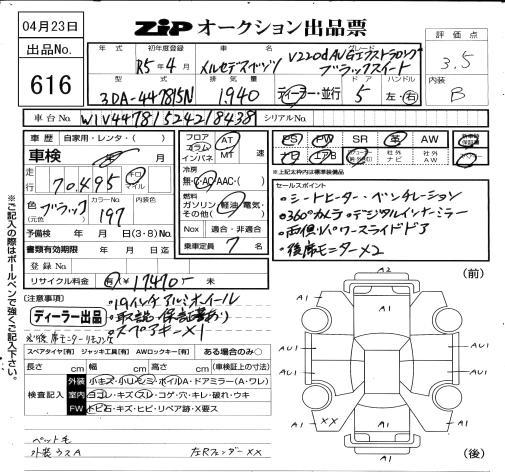 04月23日
ZIP オークション出品票
出品No.
616
年式
初年度登録
R5年4月
車名
メルセデスベンツ
グレード
V220d AVGエクストラロング
ブラックスイート
評価点
3.5
型式
3DA-447815N
排気量
1940
ディーラー・並行
ドア
5
ハンドル
左・右
内装
B
車台No.
W1V44781524218438
シリアルNo.
車歴 自家用・レンタ・( )
車検 年 月
走行
70,495
キロ
マイル
色
(元色)
ブラック
カラーNo.
197
内装色
予備検 年 月 日(3・8)No.
書類有効期限 年 月 日迄
登録No.
リサイクル料金 有 ¥17470- 未
フロア
コラム
インパネ
AT
MT
速
冷房
無・C・AC・AAC・( )
燃料
ガソリン・軽油・電気・
その他( )
Nox 適合・非適合
乗車定員 7 名
PS PW SR 革 AW
ナビ エアB
社外
ナビ
社外
AW
*上記太枠内は標準装備品
セールスポイント
・シートヒーター・ベンチレーション
・360°カメラ・デジタルインナーミラー
・両側パワースライドドア
・後席モニター×2
(注意事項)
ディーラー出品
・19インチアルミホイール
・取説・保証書あり
・スペアキー×1
スペアタイヤ[有] ジャッキ工具[有] AWロックキー[有] ある場合のみ○
長さ cm 幅 cm 高さ cm (車検証上の寸法)
検査記入
外装 小キズ・小リ・シミ・ボイルA・ドアミラー(A・ワレ)
室内 ヨゴレ・キズ・スレ・コゲ・穴・キレ・破れ・ウキ
FW トビ石・キズ・ヒビ・リペア跡・X要ス
ペット毛
外装ウスA
左Rフェンダー XX
※ご記入の際はボールペンで強くご記入下さい。
(前)
A2
A1
A1
AU1
AU1
AU1
AU1
A1
XX
A1
A1
(後)